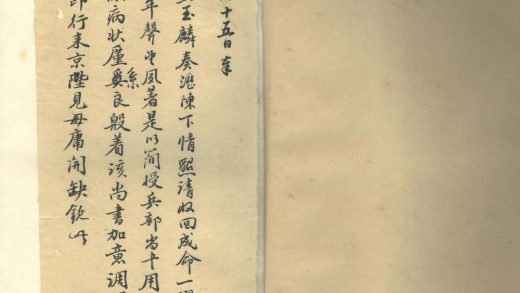 十五日奉
玉麟奏瀝陳下情懇請收回成命一
年聲望夙著是以簡授兵部尚用
病狀廑系良殷着該尚書加意調
即行来京陛見毋庸開缺欽此